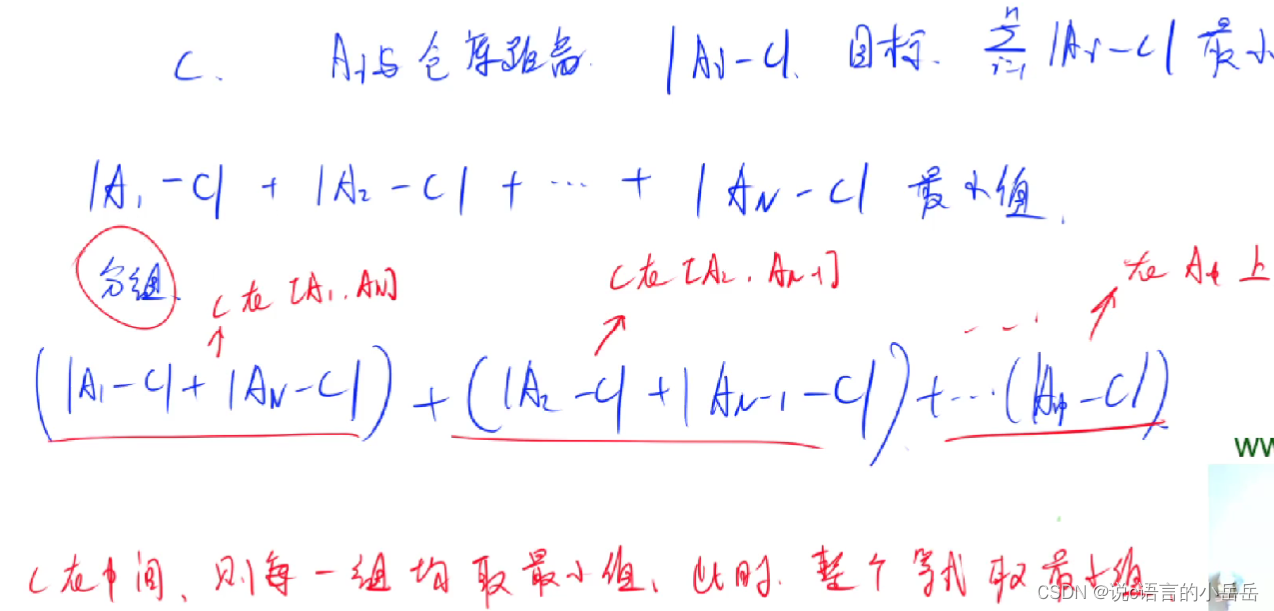 C. Ai与仓库距离. |Ai-C|. 目标. \sum_{i=1}^{n} |Ai-C| 最小
|A₁-C| + |A₂-C| + … + |A_N-C| 最小值.
分组. C在[A₁,A_N] C在[A₂,A_{N-1}] 在A中上
(|A₁-C|+|A_N-C|)+(|A₂-C|+|A_{N-1}-C|)+…(|A中-C|)
ww
C在中间、则每一组均取最小值、此时.整个等式取最小值.
CSDN @说c语言的小岳岳